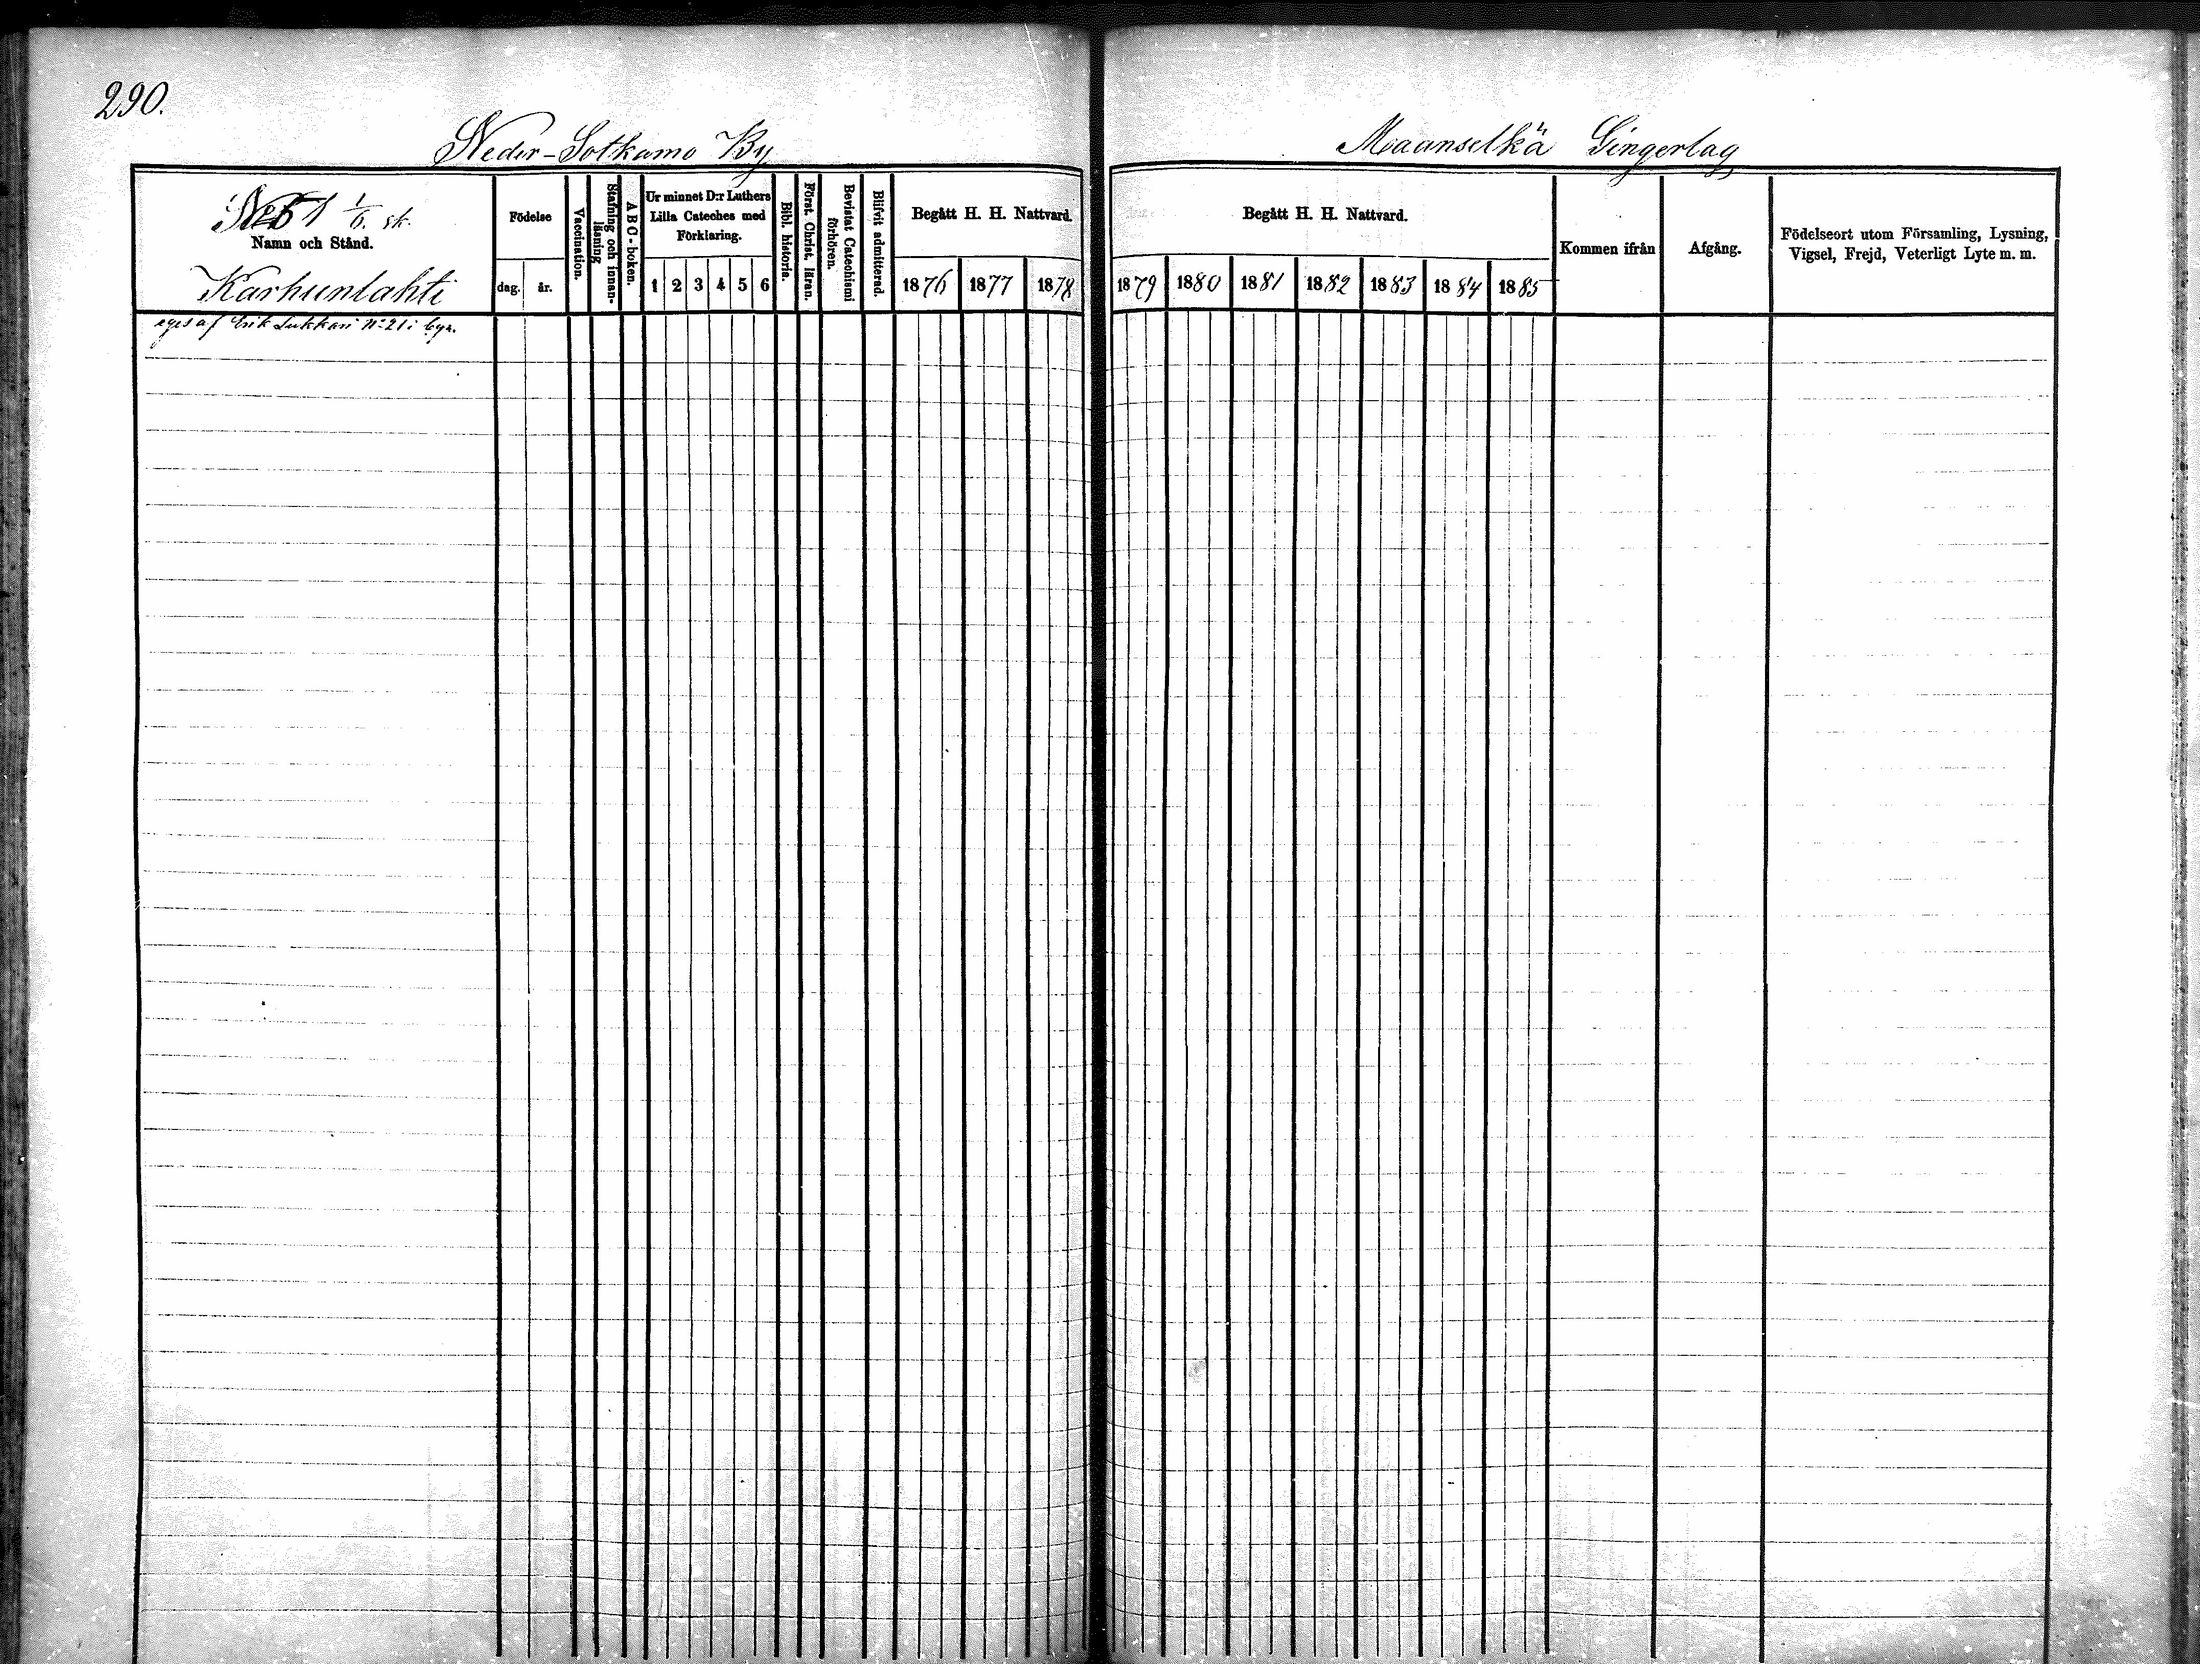 290.
Neder-Sotkamo By
Maanselkä Gingerlag
1/6. sk.
Namn och Stånd.
Karhunlahti
Födelse
dag. år.
Vaccination.
Stafning och innanläsning
ABC-boken.
Ur minnet D:r Luthers
Lilla Cateches med
Förklaring.
1 2 3 4 5 6
Bibl. historia.
Först. Christ. läran.
Bevistat Catechismi
förhören.
Blifvit admitterad.
Begått H. H. Nattvard.
1876 1877 1878
Begått H. H. Nattvard.
1879 1880 1881 1882 1883 1884 1885
Kommen ifrån
Afgång.
Födelseort utom Församling, Lysning,
Vigsel, Frejd, Veterligt Lyte m. m.
eges af Erik Lukkari N:o 21 i byn.